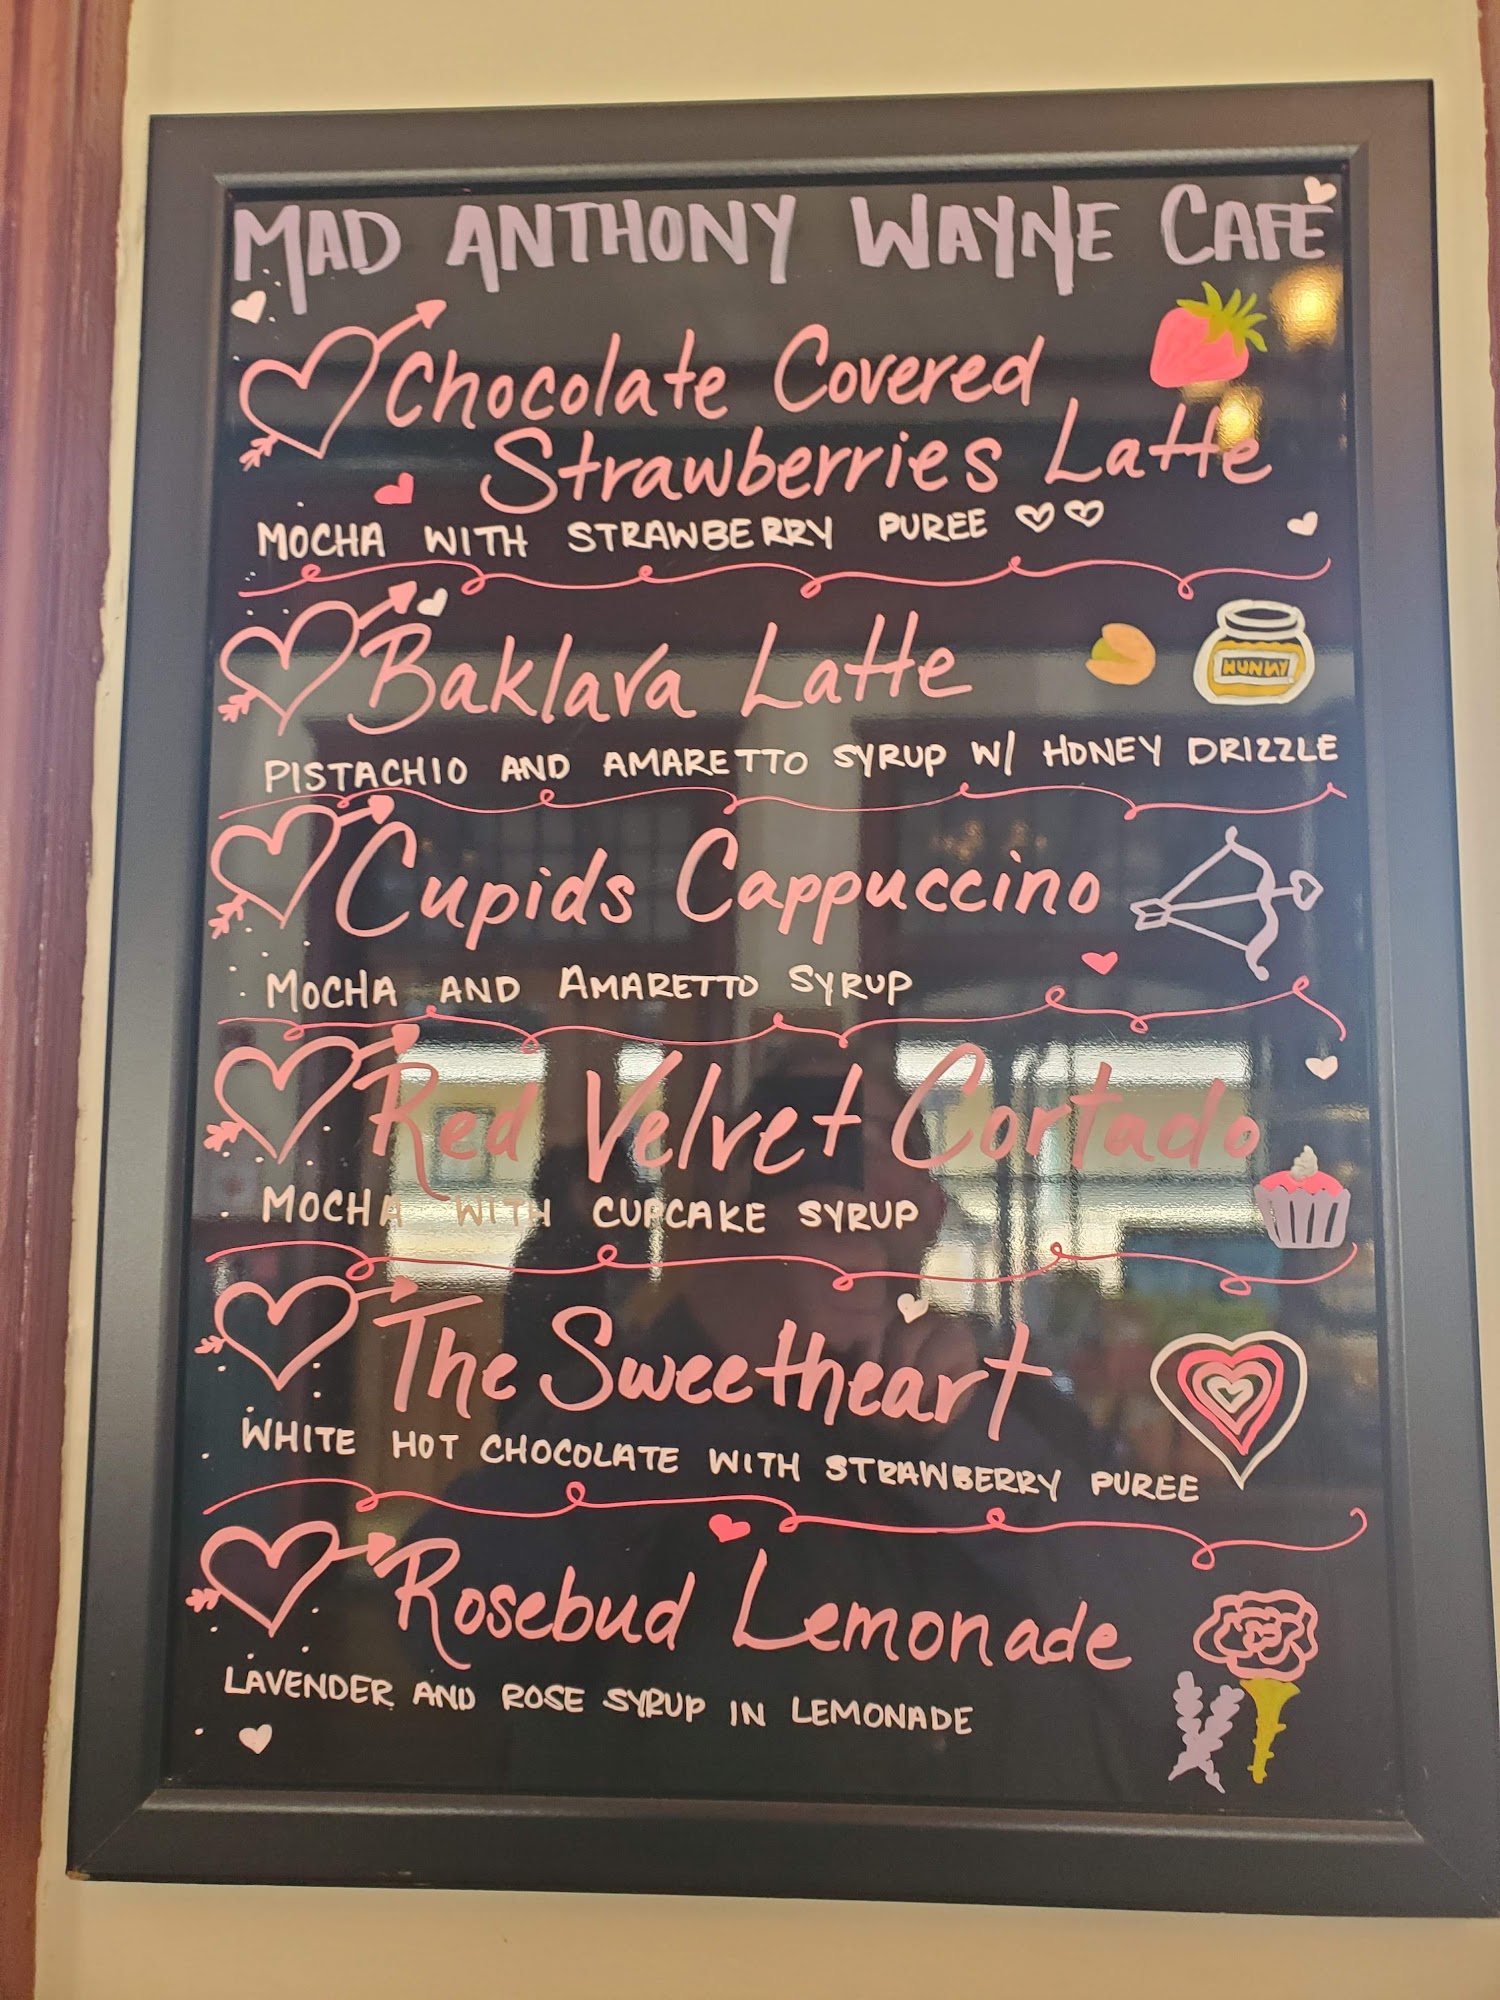 MAD ANTHONY WAYNE CAFE
Chocolate Covered
Strawberries Latte
MOCHA WITH STRAWBERRY PUREE
Baklava Latte
HUNNY
PISTACHIO AND AMARETTO SYRUP W/ HONEY DRIZZLE
Cupids Cappuccino
MOCHA AND AMARETTO SYRUP
Red Velvet Cortado
MOCHA WITH CUPCAKE SYRUP
The Sweetheart
WHITE HOT CHOCOLATE WITH STRAWBERRY PUREE
Rosebud Lemonade
LAVENDER AND ROSE SYRUP IN LEMONADE